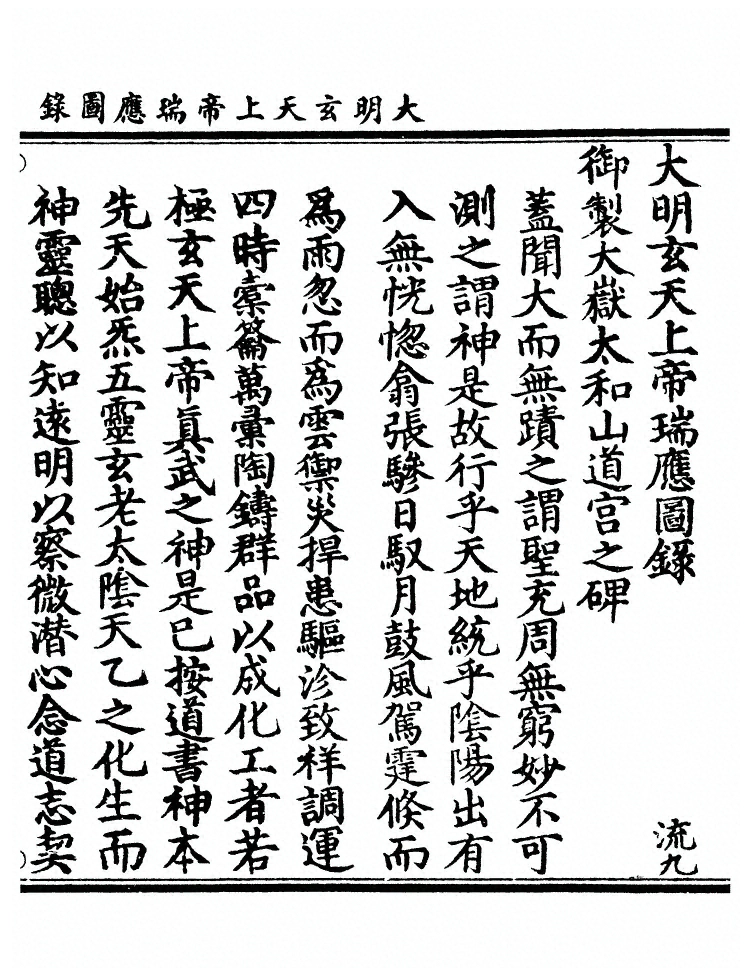 大明玄天上帝瑞應圖錄
大明玄天上帝瑞應圖錄 流九
御製大嶽太和山道宫之碑
蓋聞大而無蹟之謂聖充周無窮妙不可
測之謂神是故行乎天地統乎陰陽出有
入無恍惚翕張驂日馭月鼓風駕霆倐而
爲雨忽而爲雲禦災捍患驅沴致祥調運
四時槖籥萬彙陶鑄群品以成化工者若
極玄天上帝真武之神是已按道書神本
先天始炁五靈玄老太陰天乙之化生而
神靈聰以知遠明以察微潛心念道志契